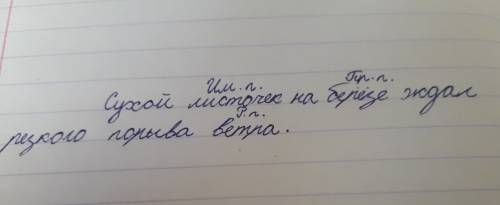 Им.п. Пр.п.
Сухой листочек на берёзе ждал
Р.п.
резкого порыва ветра.